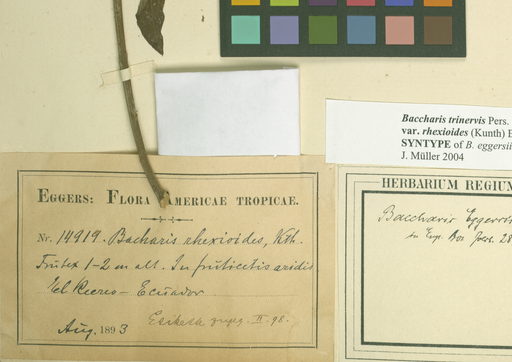 Baccharis trinervis Pers.
var. rhexioides (Kunth) B
SYNTYPE of B. eggersii
J. Müller 2004
EGGERS: FLORA AMERICAE TROPICAE.
Nr. 14919. Bacharis rhexioides, Kth.
Frutex 1-2 m alt. In fruticetis aridis
El Recreo - Ecuador
Aug. 1893
II. 98.
HERBARIUM REGIUM
Baccharis Eggersii